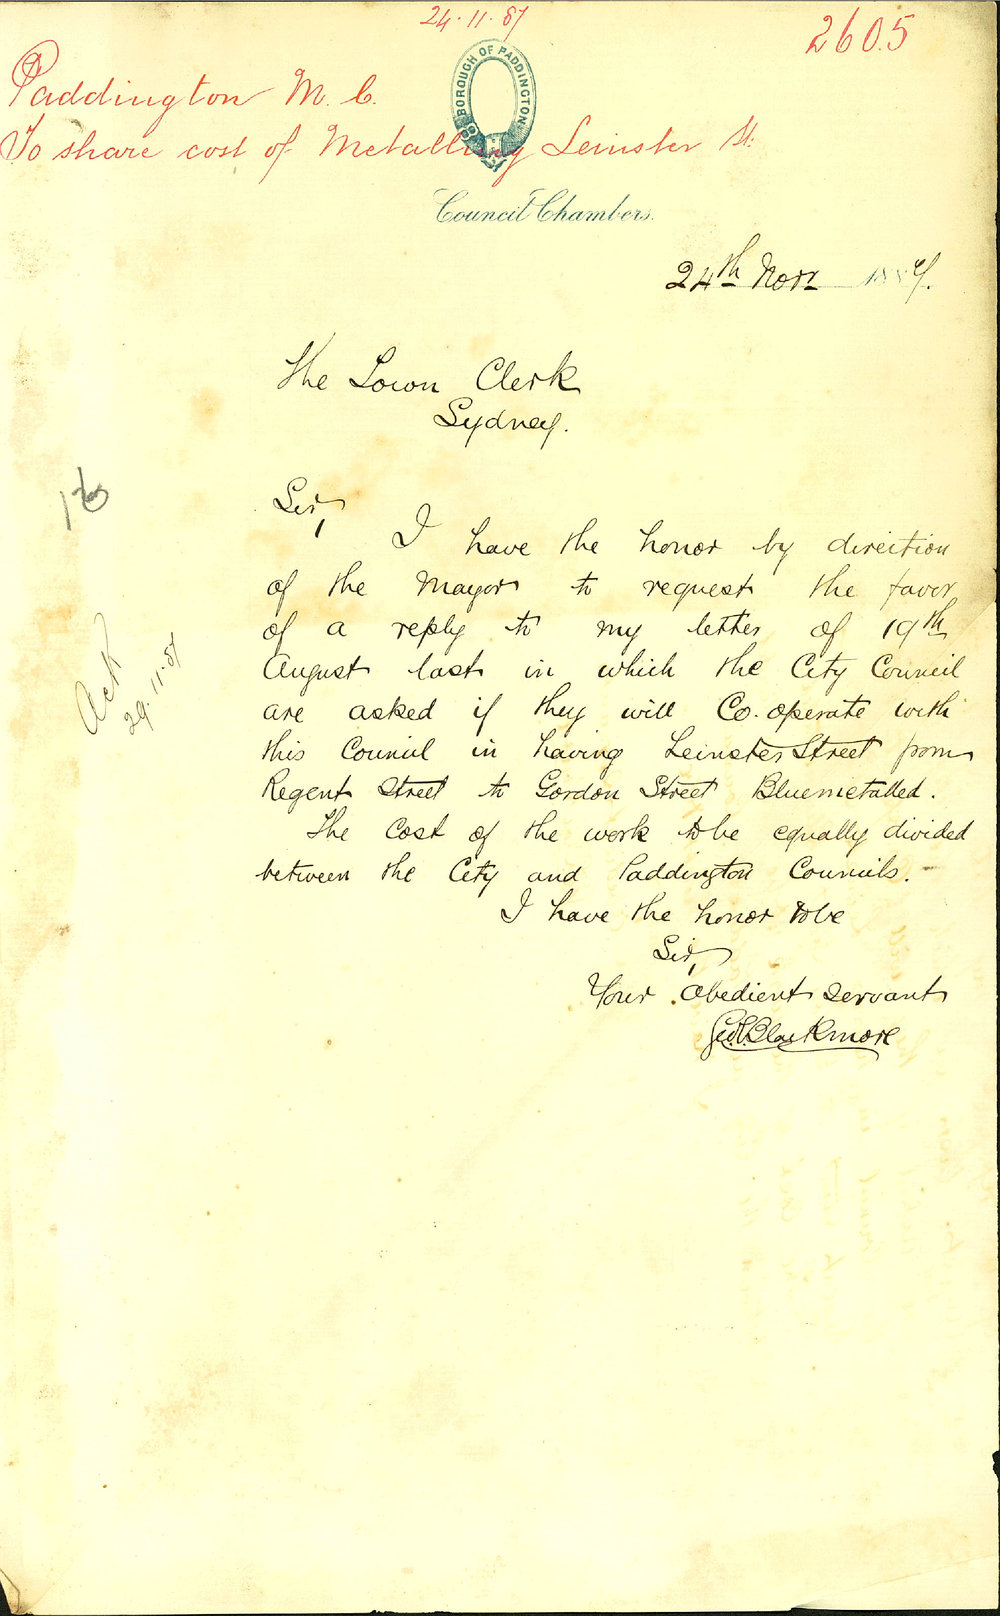 24.11.87
2605
Paddington M. C.
To share cost of Metalling Leinster St:
BOROUGH OF PADDINGTON
Council Chambers.
24th Novr 1887.
The Town Clerk
Sydney.
Sir,
I have the honor by direction
of the Mayor to request the favor
of a reply to my letter of 19th
August last in which the City Council
are asked if they will Co.operate with
this Council in having Leinster Street from
Regent Street to Gordon Street Bluemetalled.
The Cost of the work to be equally divided
between the City and Paddington Councils.-
I have the honor to be
Sir,
Your Obedient Servant
Blackmore
Ack
29.11.87